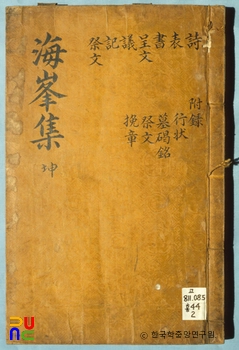 詩
表
書
呈文
議
記
祭文
附錄
行狀
墓碣銘
祭文
挽章
海峯集
坤
고
811.085
홍44
2
ⓒ한국학중앙연구원